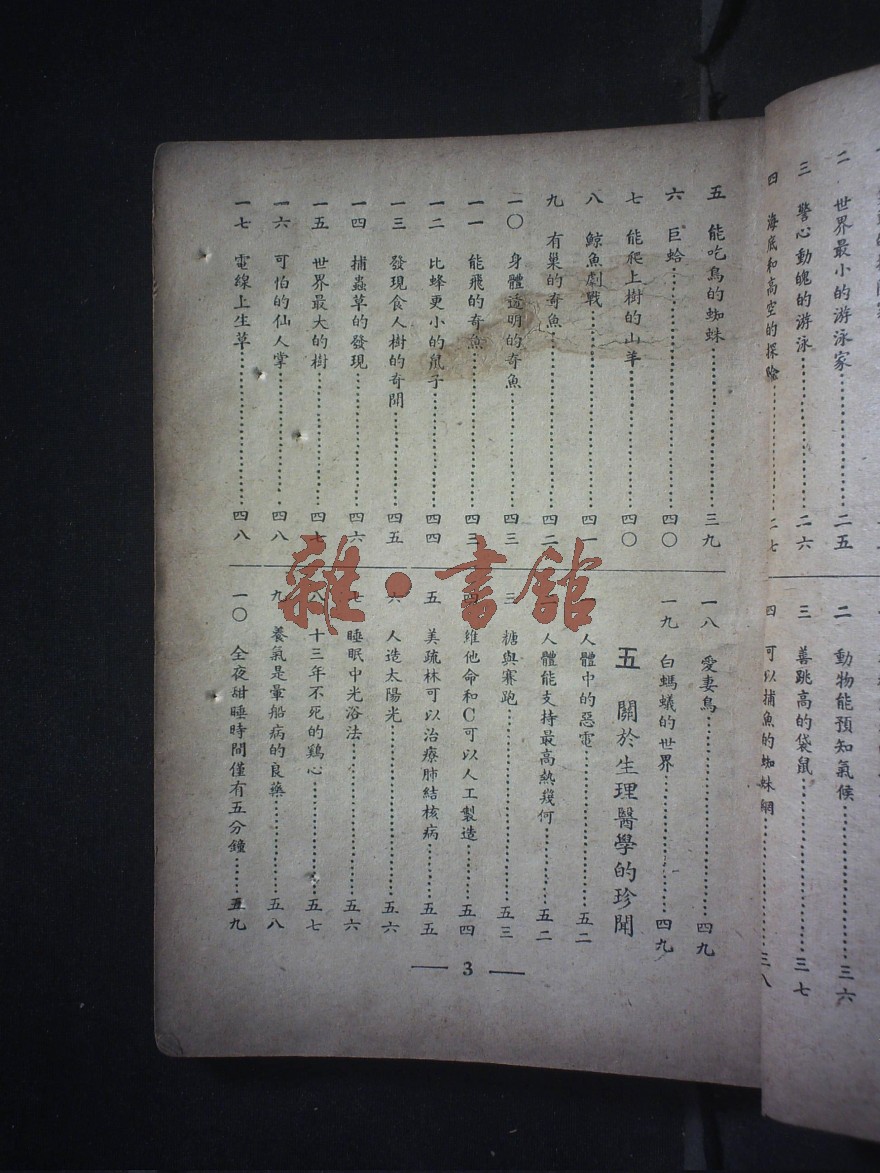 二 世界最小的游泳家………二五
三 警心動魄的游泳………二六
四 海底和高空的探險………二七
二 動物能預知氣候………三六
三 善跳高的袋鼠………三七
四 可以捕魚的蜘蛛網………三八
五 能吃鳥的蜘蛛………三九
六 巨蛤………四〇
七 能爬上樹的山羊………四〇
八 鯨魚劇戰………四一
九 有巢的奇魚………四二
一〇 身體透明的奇魚………四三
一一 能飛的奇魚………四三
一二 比蜂更小的鼠子………四四
一三 發現食人樹的奇聞………四五
一四 捕蟲草的發現………四六
一五 世界最大的樹………四七
一六 可怕的仙人掌………四八
一七 電線上生草………四八
一八 愛妻鳥………四九
一九 白螞蟻的世界………四九
五 關於生理醫學的珍聞
人體中的惡電………五二
人體能支持最高熱幾何………五二
三 糖與賽跑………五三
四 維他命和C可以人工製造………五四
五 美疏林可以治療肺結核病………五五
六 人造太陽光………五六
七 睡眠中光浴法………五六
八 十三年不死的鷄心………五七
九 養氣是暈船病的良藥………五八
一〇 全夜甜睡時間僅有五分鐘………五九
— 3 —
雜·書館